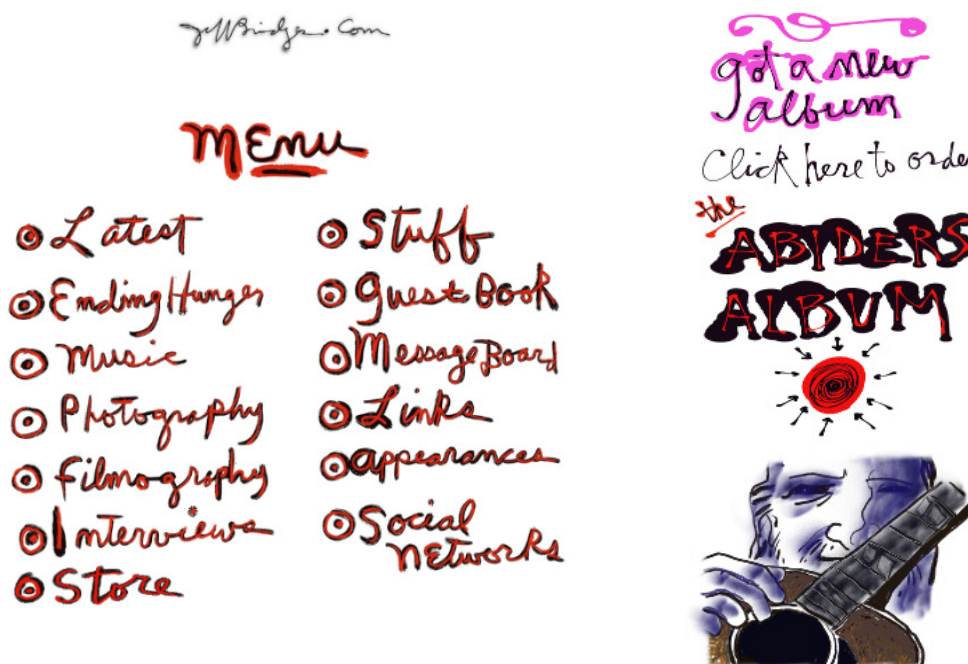 JeffBridges.Com
MENU
Latest
Ending Hunger
Music
Photography
Filmography
Interviews
Store
Stuff
guest Book
Message Board
Links
appearances
Social
NETworks
got a new
album
Click here to order
the
ABIDERS
ALBUM